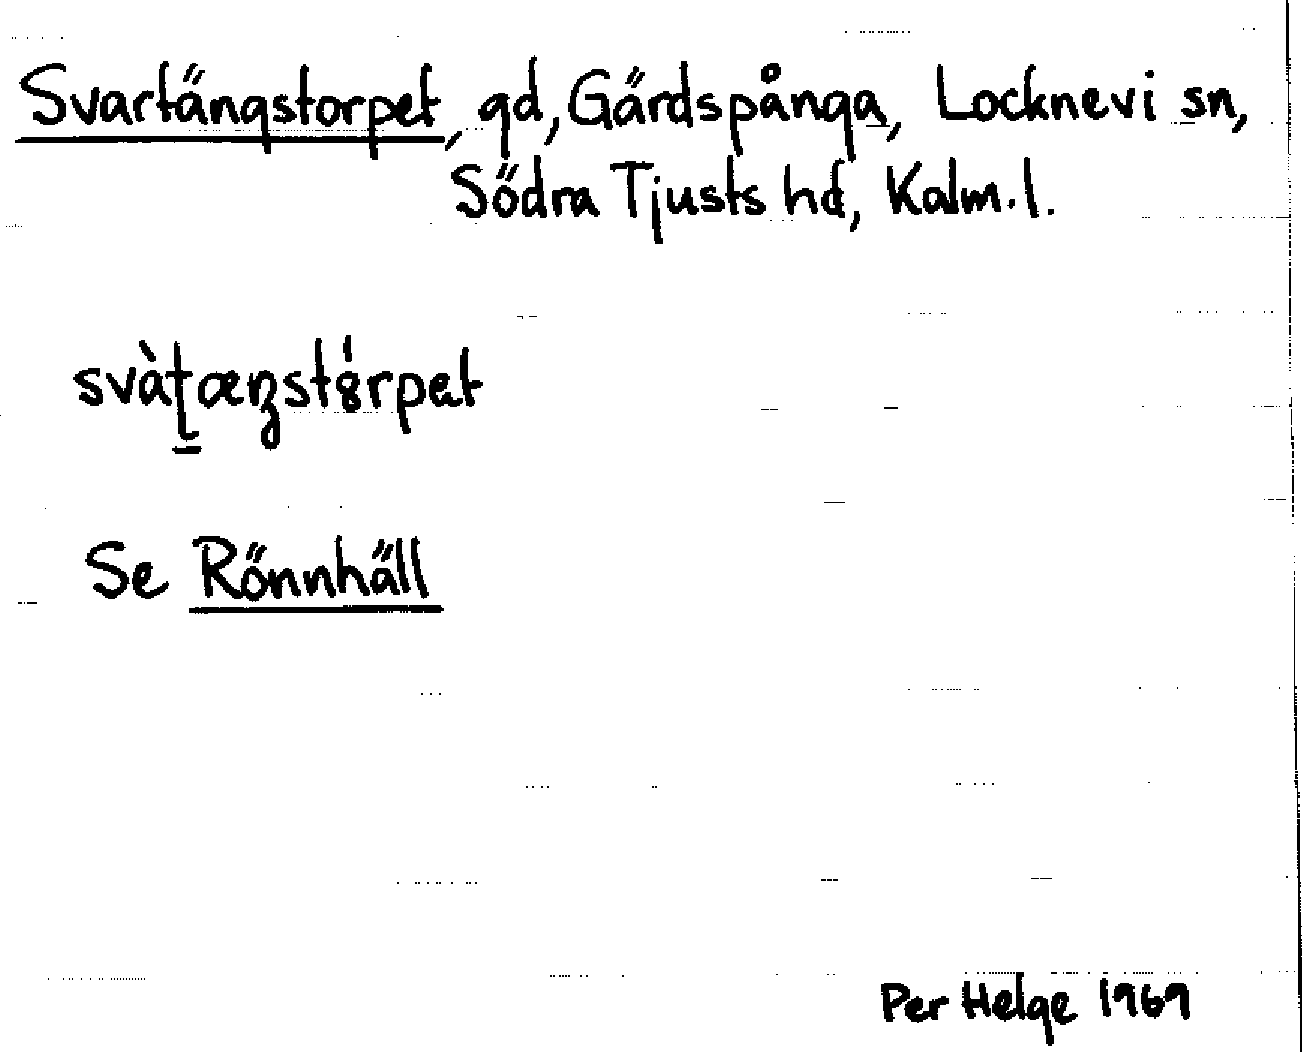 Svartängstorpet, gd, Gärdspånga, Locknevi sn,
Södra Tjusts hd, Kalm. l.
svàt̠æŋst8́rpet
Se Rönnhäll
Per Helge 1969